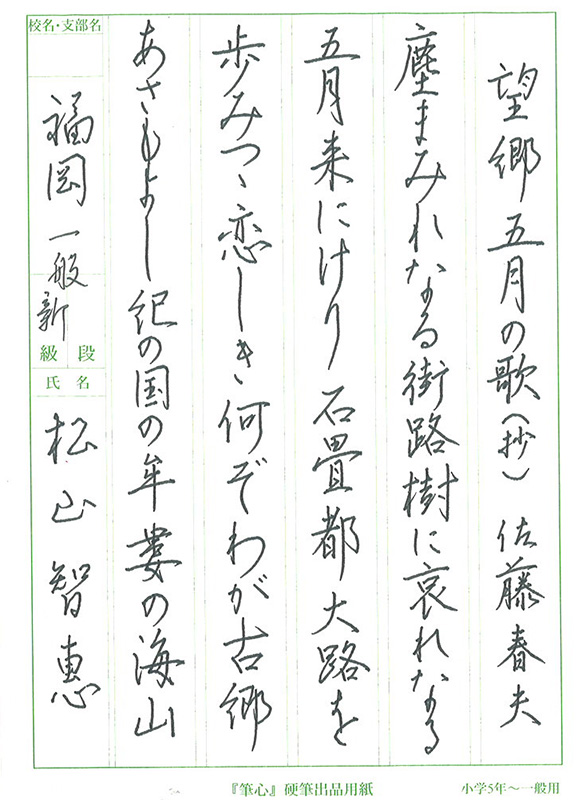 望郷五月の歌（抄） 佐藤春夫
塵まみれなる街路樹に哀れなる
五月来にけり 石畳都大路を
歩みつゝ恋しきゝ何ぞわが古郷
あさもよし紀の国の牟婁の海山
校名・支部名
福岡
一般新
級 段
氏名
松山智恵
『筆心』硬筆出品用紙
小学5年～一般用